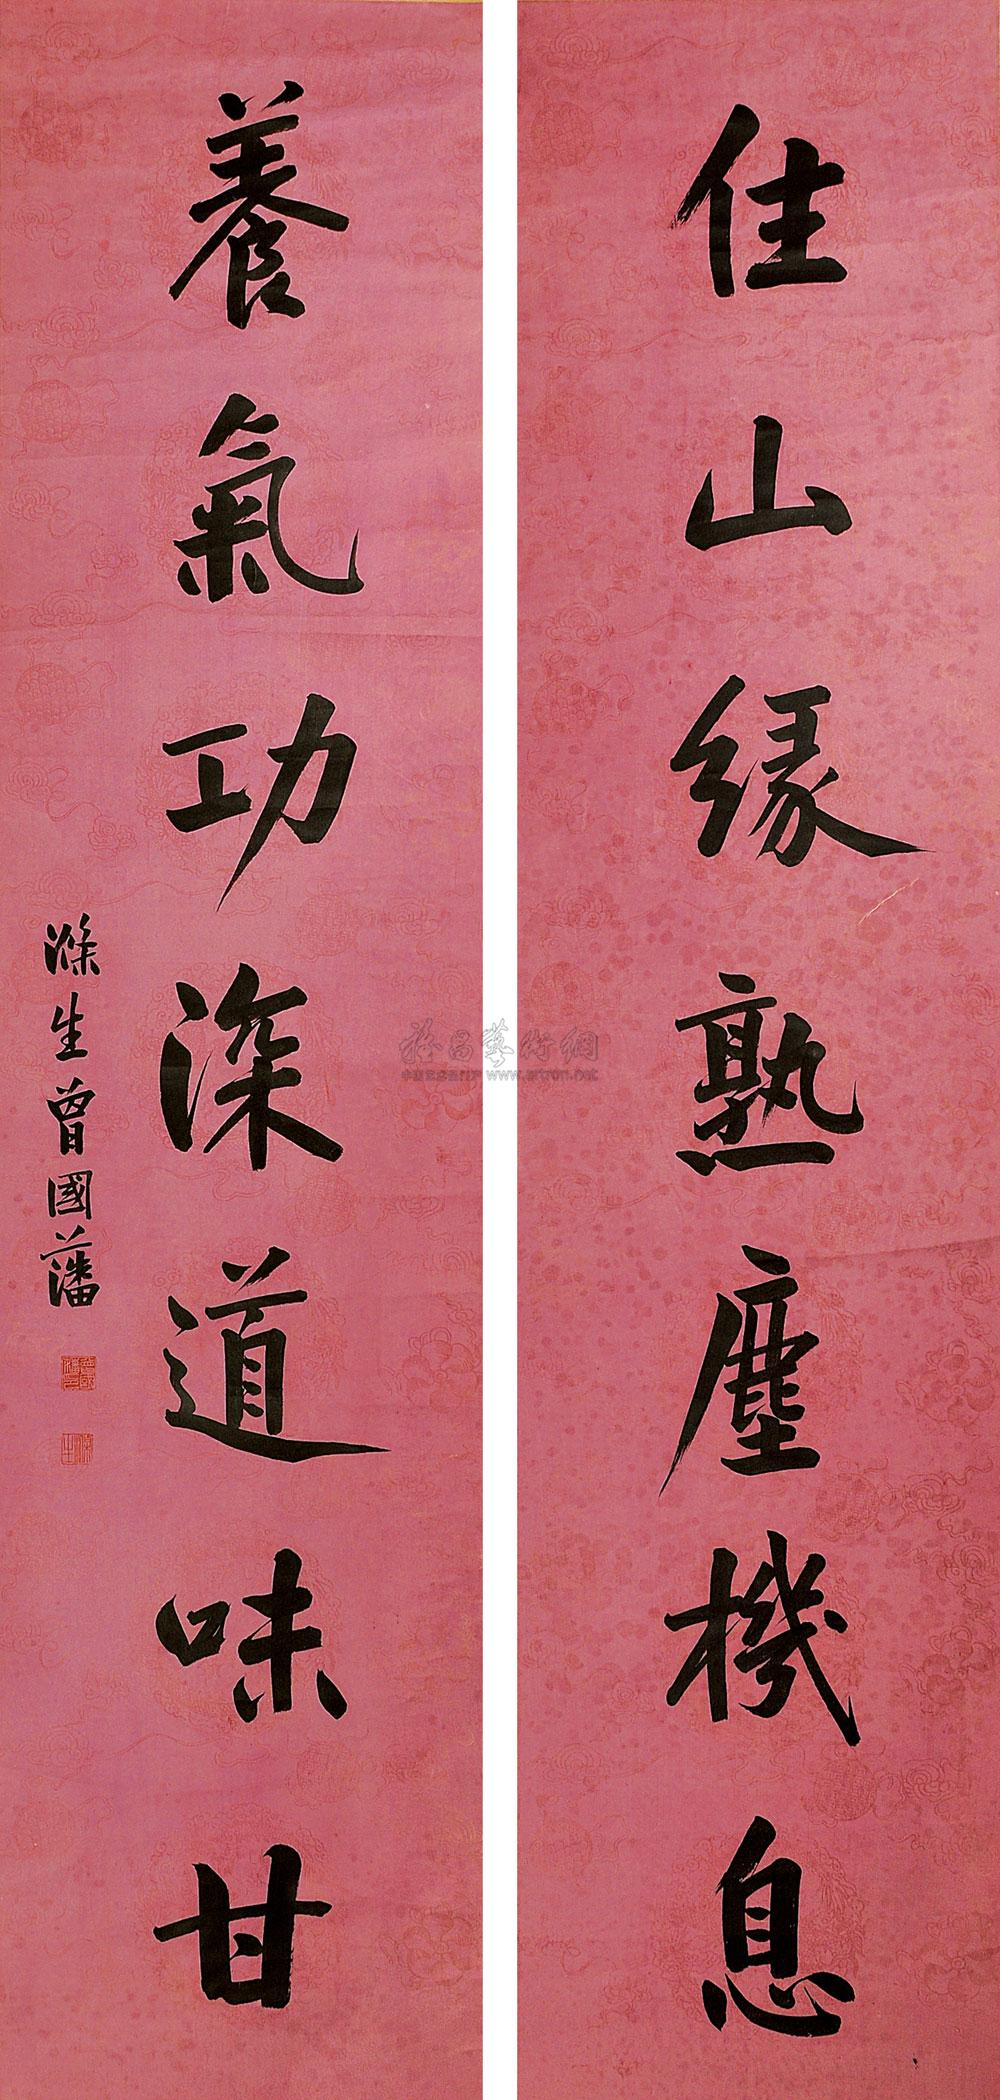 住山緣熟塵機息
養氣功深道味甘
滌生曾國藩
www.artron.net